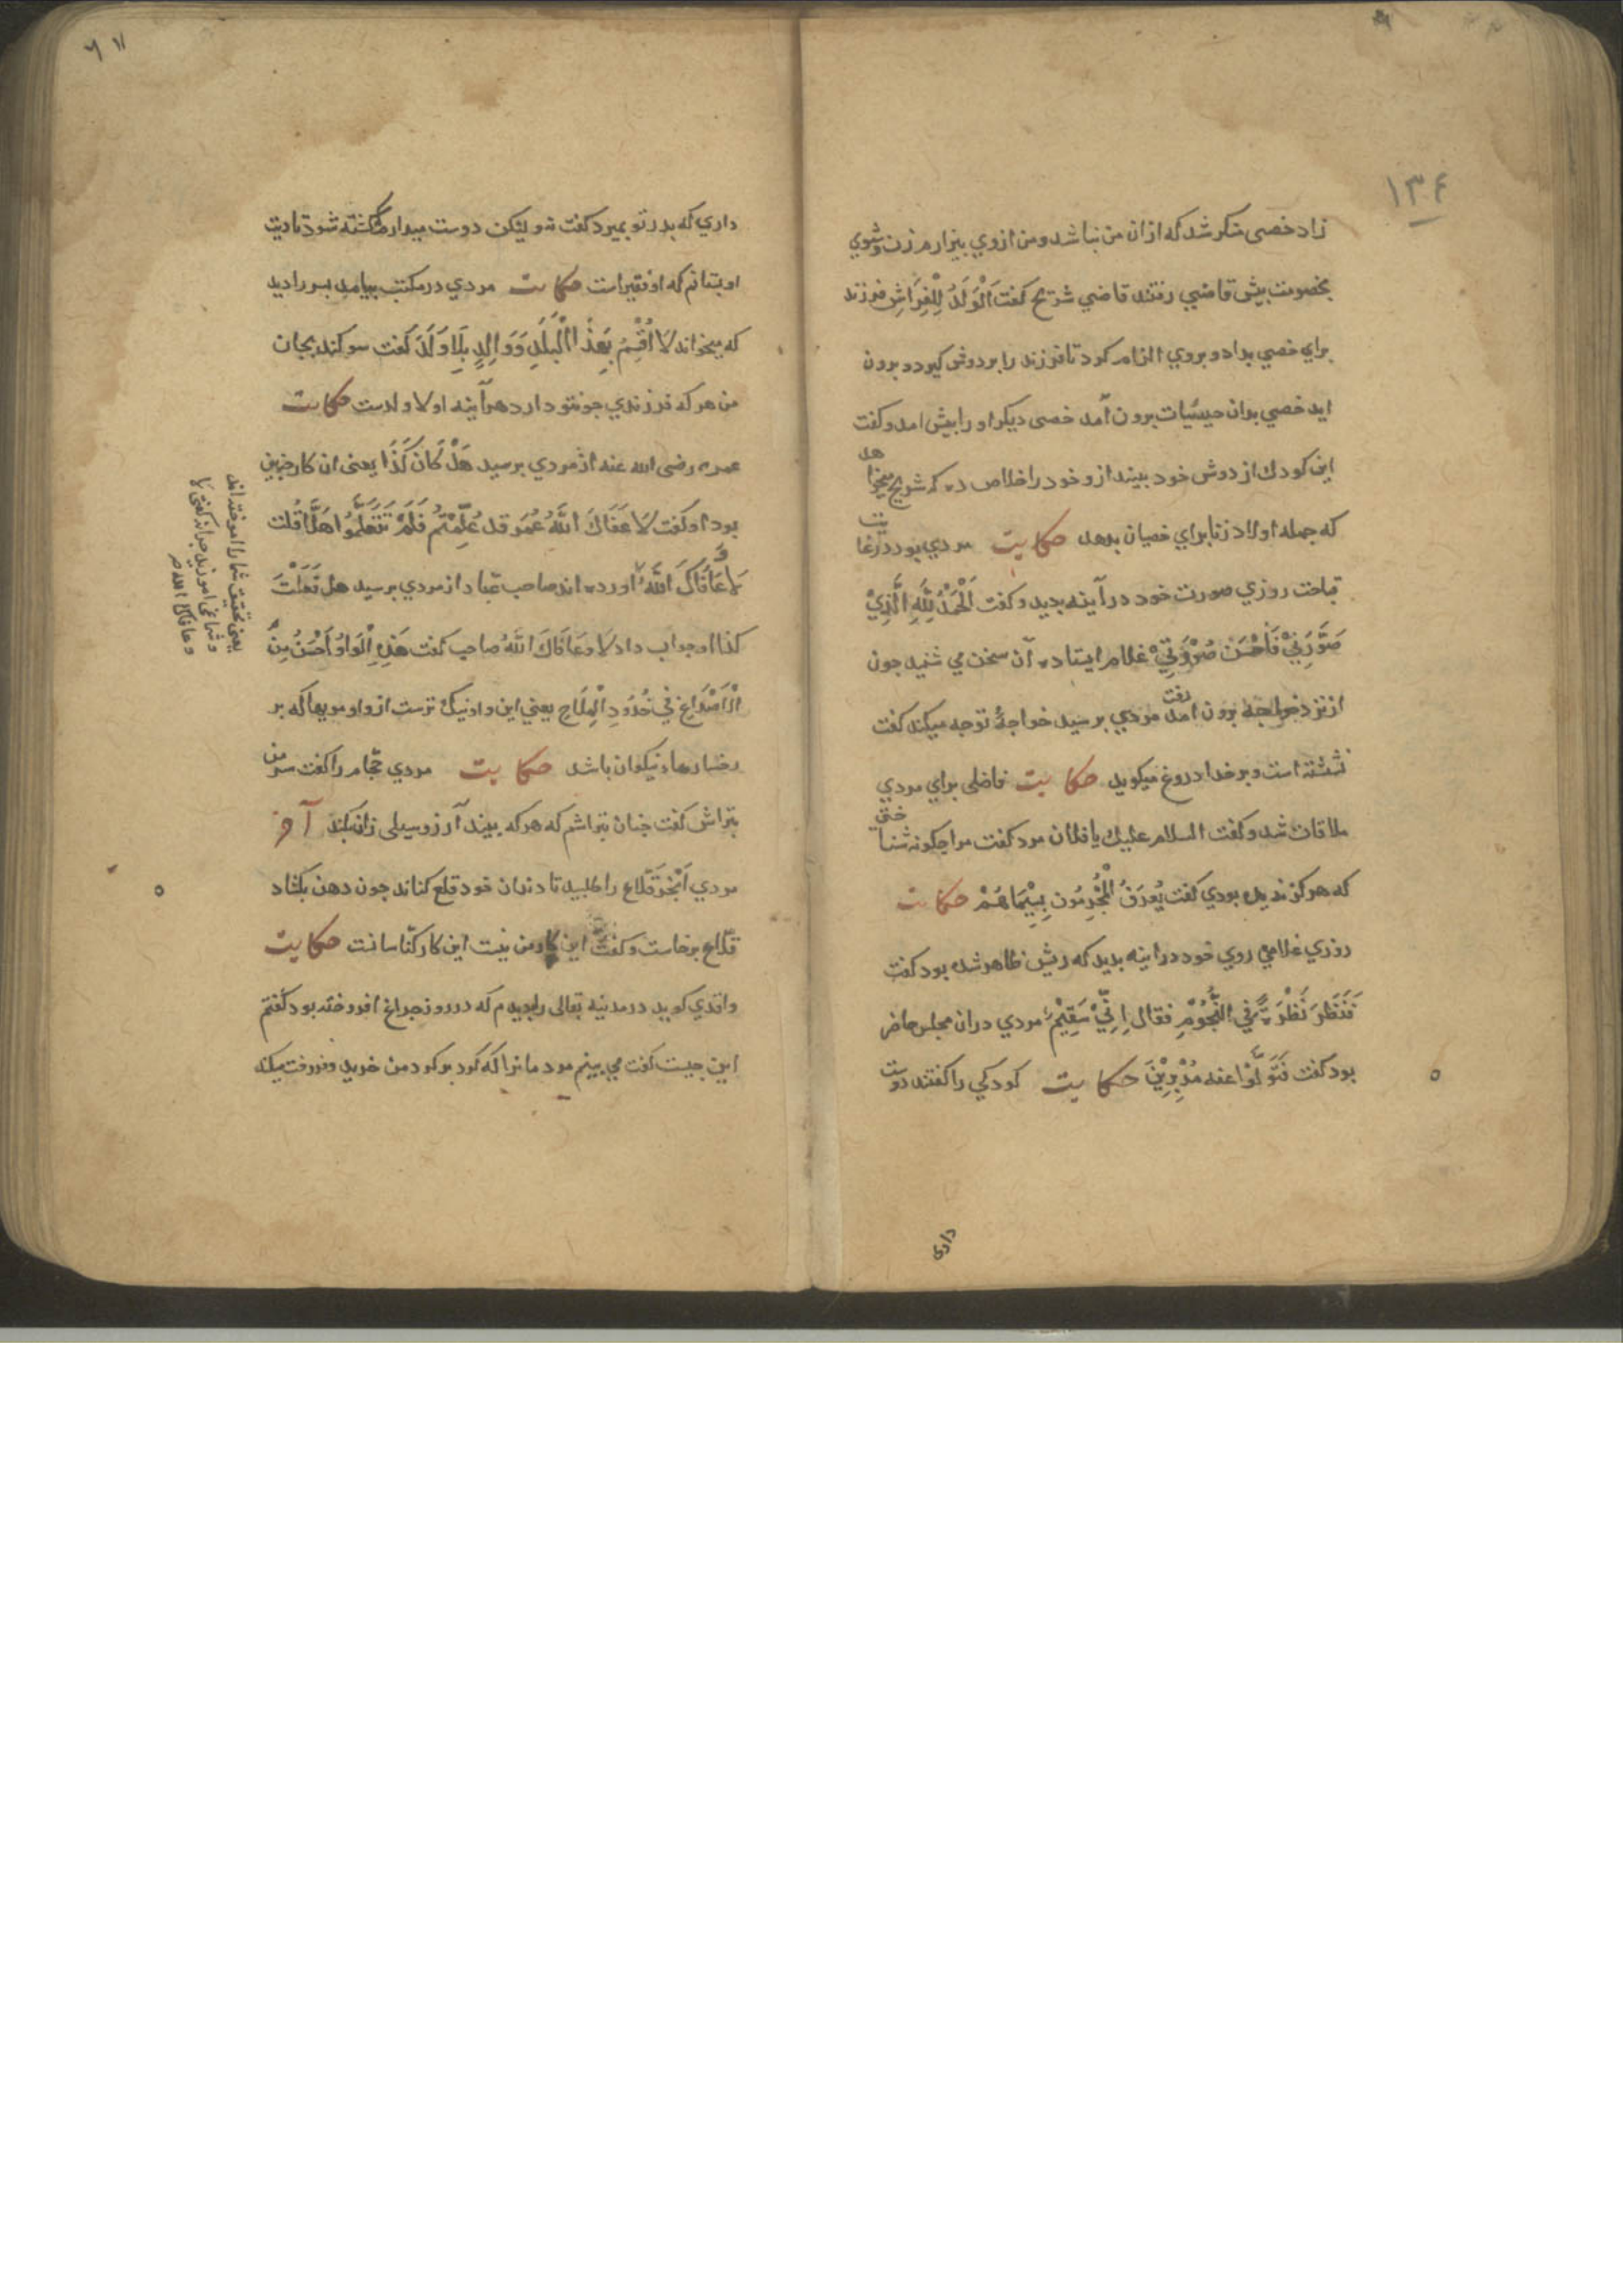 ١٣٤
زاد خصی منکر شد که از ان من نباشد و من ازوي بیزارم زن و شوي
بخصومت پیش قاضي رفتند قاضي شریح گفت اَلْوَلَدُ لِلْفِرَاشِ فرزند
براي خصي بداد و بروي الزام کرد تا فرزند را بر دوش گیرد و برون
اید خصي بران حیسیات برون آمد خصی دیگر او را پیش امد و گفت
این کودك از دوش خود بیند از و خود را خلاص ده که شریح میخواهد
که جمله اولاد زنا براي خصیان بدهد حکایت مردي بود در غایت
قباحت روزي صورت خود در آینه بدید و گفت اَلْحَمْدُ لِلّٰهِ الَّذِيْ
صَوَّرَنِيْ فَاَحْسَنَ صُوْرَتِيْ غلام ایستاده آن سخن مي شنید چون
از نزد خواجه برون امد رفت مردي پرسید خواجهٔ تو چه میکند گفت
نشسته است و بر خدا دروغ میگوید حکایت فاضلی براي مردي
ملاقات شد و گفت السلام علیك یا فلان مرد گفت مرا چگونه شناختی
که هرگز ندیده بودي گفت یُعْرَفُ الْمُجْرِمُونَ بِسِیْمَاهُمْ حکایت
روزي غلامي روي خود در اینه بدید که ریش ظاهر شده بود گفت
فَنَظَرَ نَظْرَةً فِي النُّجُوْمِ فقال اِنِّيْ سَقِیْمٌ مردي دران مجلس حاضر
بود گفت فَتَوَلَّوْا عنه مُدْبِرِیْنَ حکایت کودکي را گفتند دوست
داری
داري که پدر تو بمیرد گفت نه و لیکن دوست میدارم که کشته شود تا دیت
او بستانم که او فقیر است حکایت مردي در مکتب بیامد پسر را دید
که میخواند لَا اُقْسِمُ بِهٰذَا الْبَلَدِ وَوَالِدٍ بِلَا وَلَدَ گفت سوگند بجان
من هر که فرزندي چو تو دارد هرآینه او لا ولدست حکایت
عمر رضی الله عنه از مردي پرسید هَلْ کَانَ کَذَا یعنی ان کار چنین
بود او گفت لَا عَفَاكَ اللّٰهُ عُمَر قد عُلِّمْتُمْ فَلَمْ تَتَعَلَّمُوا هَلَّا قُلت
لَا وَعَافَاكَ اللّٰهُ اورده اند صاحب عبّاد از مردي پرسید هل فَعَلْتَ
کذا او جواب داد لَا وَعَافَاكَ اللّٰهُ صاحب گفت هٰذِهِ الْوَاوُ اَحْسَنُ مِنْ
الْاَصْدَاغِ فِي خُدُوْدِ الْمِلَاحِ یعني این واو نیك ترست از واو مویها که بر
رخسارهاء نیکوان باشد حکایت مردي حجّام را گفت سر من
بتراش گفت چنان بتراشم که هر که بیند آرزو سیلی زدن کند آخر
مردي اَبْخَر قلّاع را طلبید تا دندان خود قلع کناند چون دهن بگشاد
قلّاع برخاست و گفت این کار من نیست این کار کنّاسانت حکایت
واقدي گوید در مدینه بقالی را بدیدم که در روز چراغ افروخته بود گفتم
این چیست گفت مي بینم مردمانرا که گرد بر گرد من خرید و فروخت میکنند
یعنی بتحقیق شما را اموخته اند
و شما نمي اموزید چرا نه گفتي لا
وعافاك الله